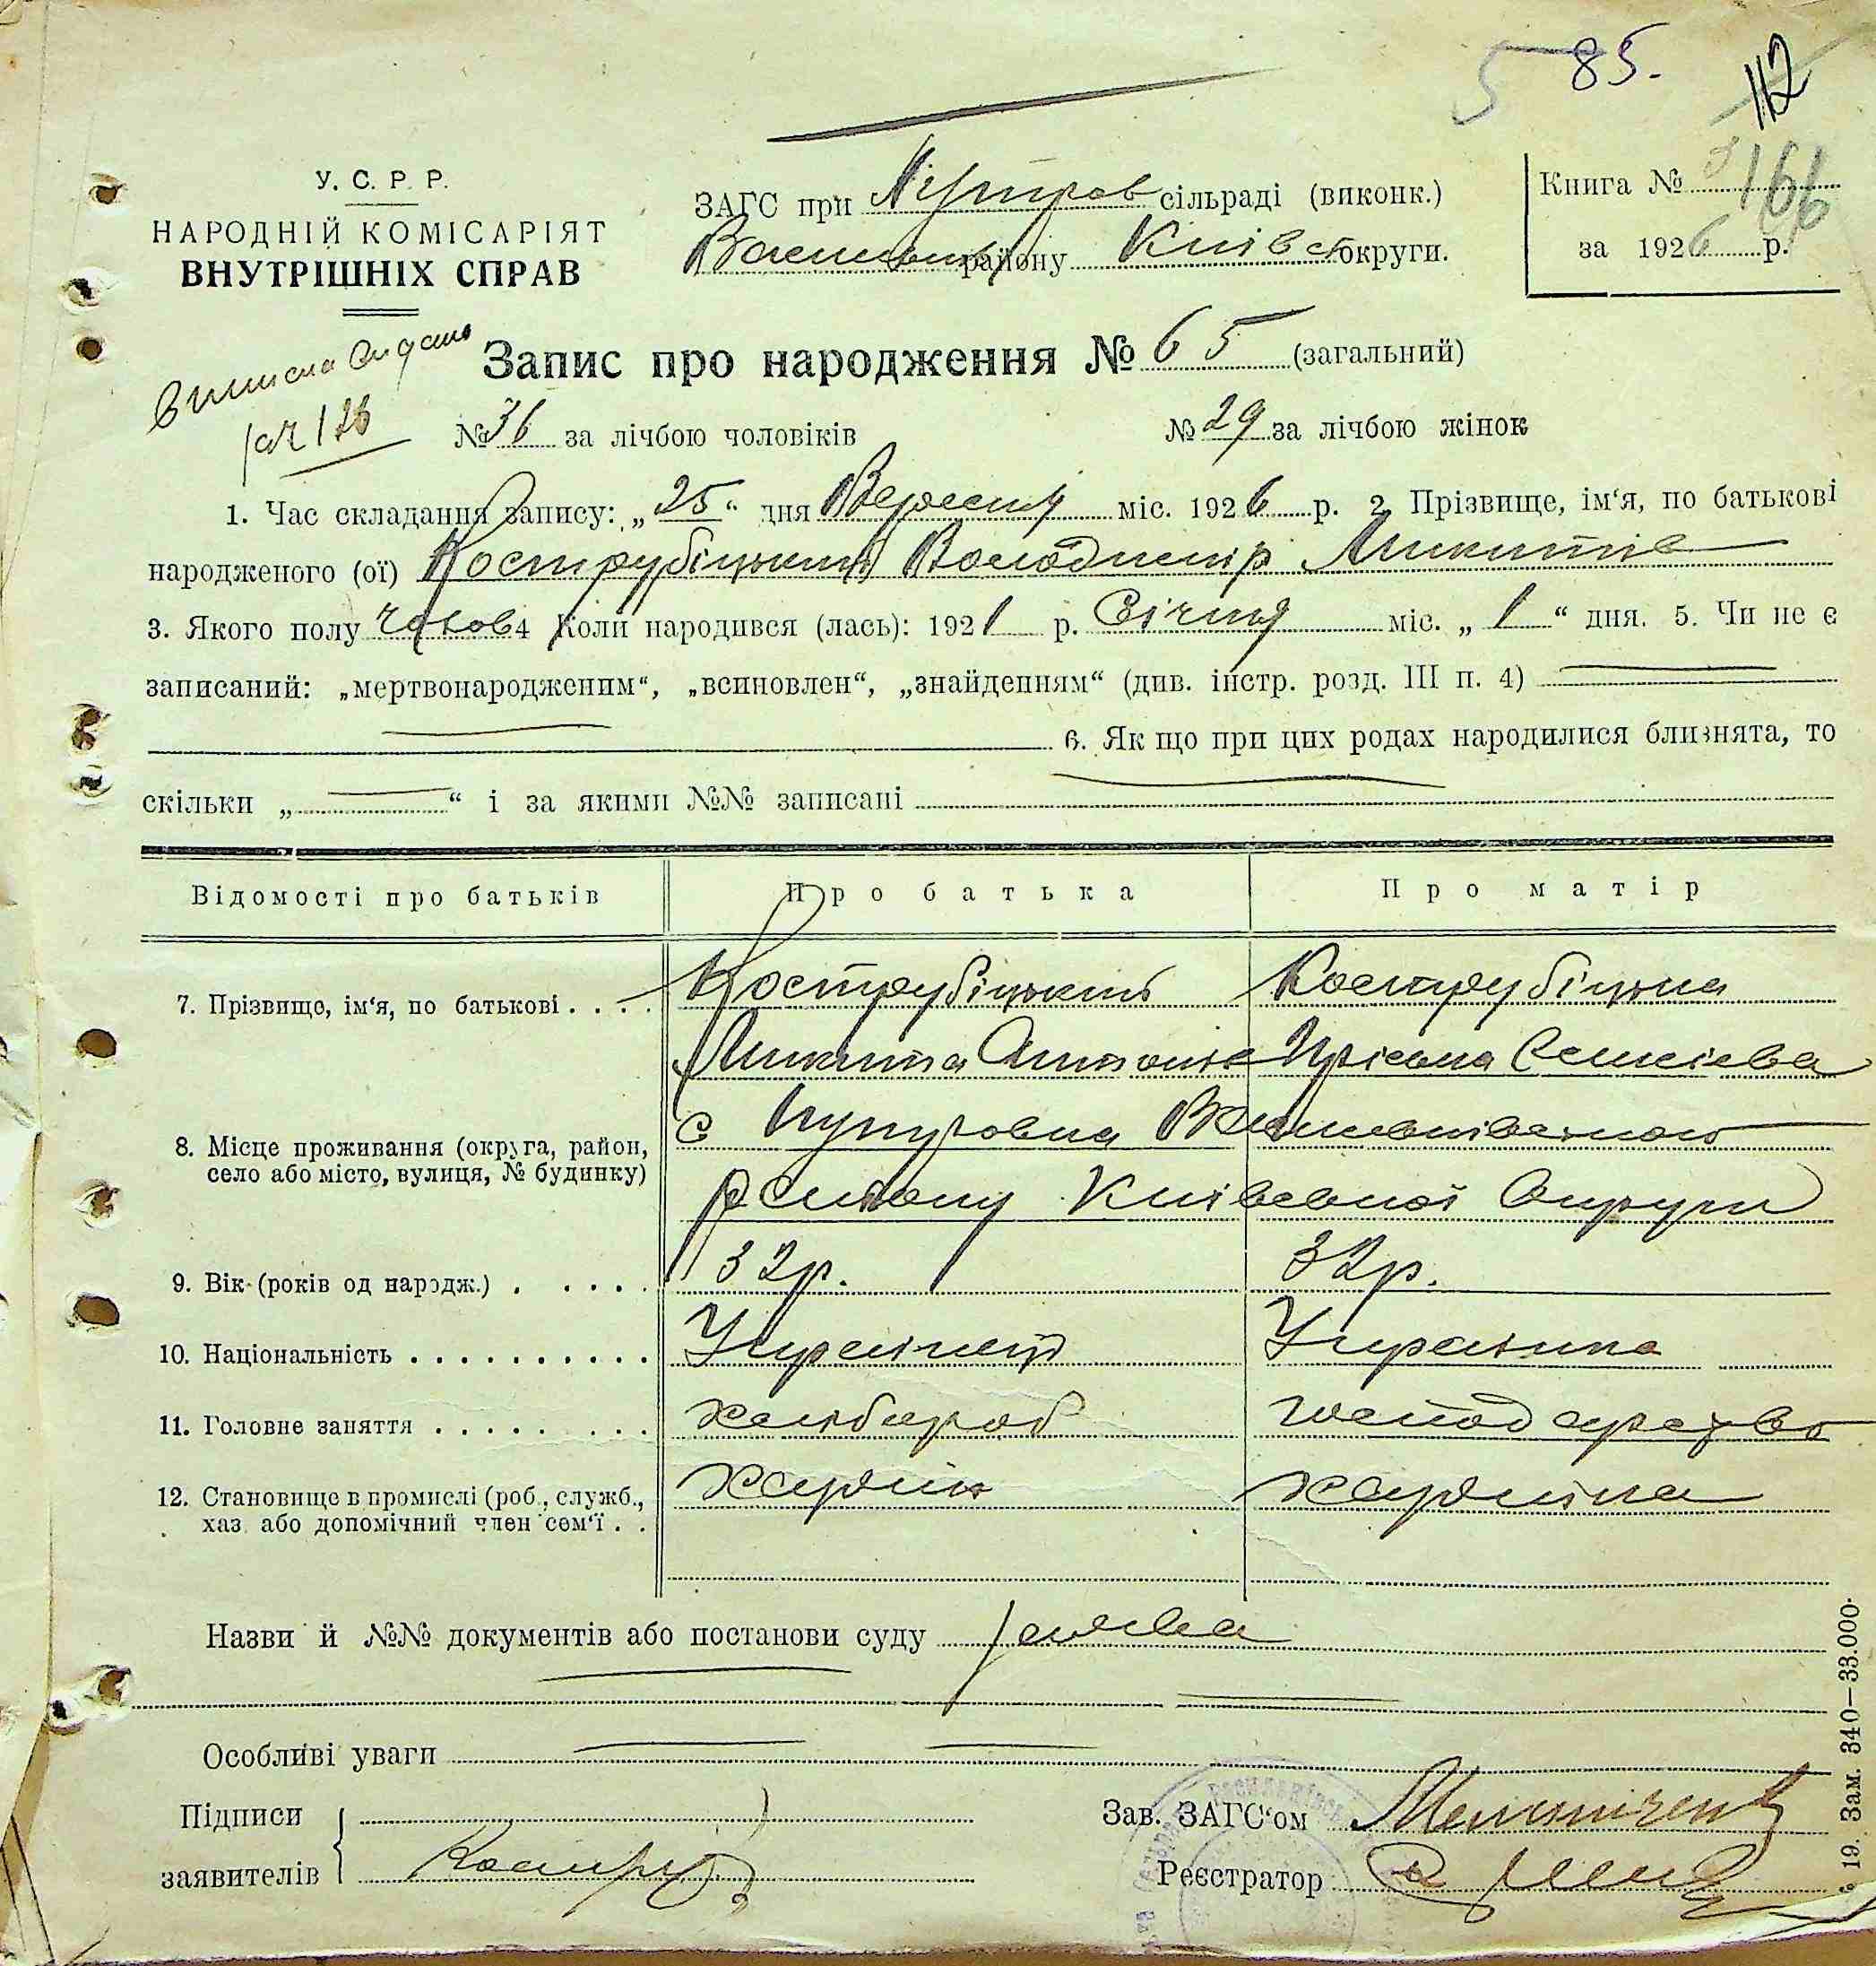 5 85. 112
166
У. С. Р. Р.
НАРОДНІЙ КОМІСАРІЯТ
ВНУТРІШНІХ СПРАВ
ЗАГС при сільраді (виконк.)
району Київськ округи.
Книга №
за 1926 р.
Виписка видано
Запис про народження № 65 (загальний)
№ 36 за лічбою чоловіків № 29 за лічбою жінок
1. Час складання запису: „25“ дня Вересня міс. 1926 р. 2. Прізвище, ім‘я, по батькові
народженого (ої) Кострубіцький Володимір Микитів
3. Якого полу чолов 4 Коли народився (лась): 1921 р. Січня міс. „1“ дня. 5. Чи не є
записаний: „мертвонародженим“, „всиновлен“, „знайденням“ (див. інстр. розд. III п. 4)
6. Як що при цих родах народилися близнята, то
скільки „ “ і за якими №№ записані
Відомості про батьків Про батька Про матір
7. Прізвище, ім‘я, по батькові . . . . Кострубіцький Кострубіцька
Микита Антонів Пріська
8. Місце проживання (округа, район, с
село або місто, вулиця, № будинку) району Київської Округи
9. Вік (років од народж.) . . . . . 32р. 32р.
10. Національність . . . . . . . . . . Українец Українка
11. Головне заняття . . . . . . . . . хлібороб господарство
12. Становище в промислі (роб., служб., хазяїн хазяїна
хаз. або допомічний член сем‘ї . .
Назви й №№ документів або постанови суду заява
Особливі уваги
Підписи
заявителів
Зав. ЗАГС‘ом
Реєстратор
19. Зам. 340—33.000.